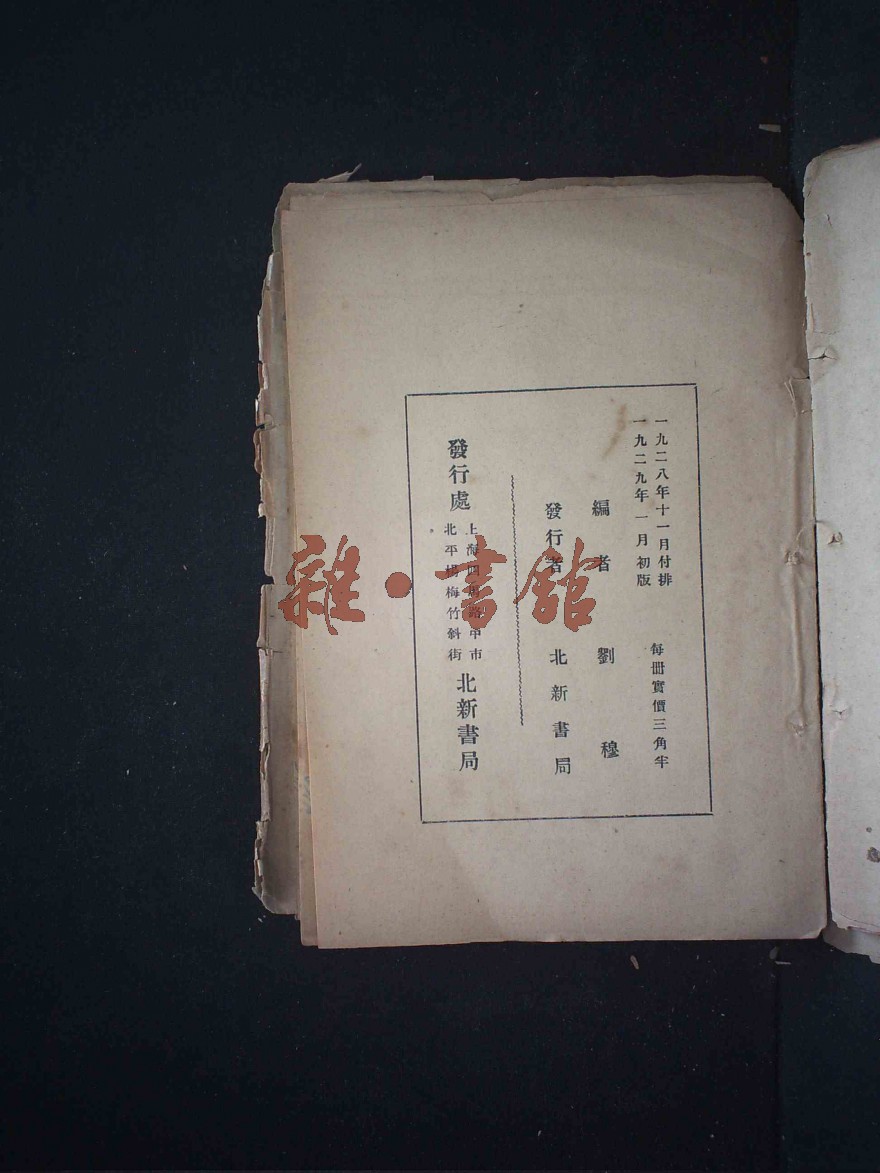 一九二八年十一月付排
一九二九年一月初版
每冊實價三角半
編者 劉穆
發行者 北新書局
發行處
上海四馬路中市
北平楊梅竹斜街
北新書局
雜·書館